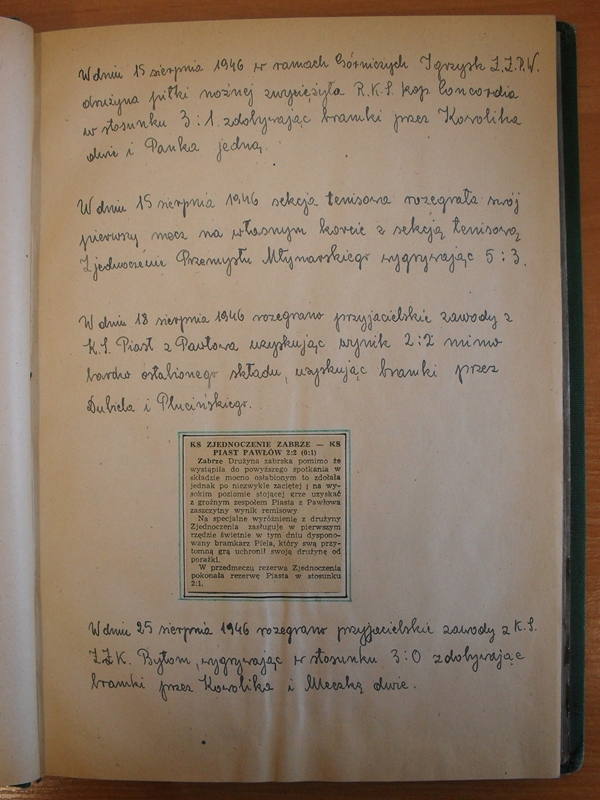 W dniu 15 sierpnia 1946 w ramach Górniczych Igrzysk Z.Z.P.W.
drużyna piłki nożnej zwyciężyła R.K.S. kop. Concordia
w stosunku 3:1. zdobywając bramki przez Kowolika
dwie i Panka jedną.
W dniu 15 sierpnia 1946 sekcja tenisowa rozegrała swój
pierwszy mecz na własnym korcie z sekcją tenisową
Zjednoczenie Przemysłu Młynarskiego wygrywając 5:3.
W dniu 18 sierpnia 1946 rozegrano przyjacielskie zawody z
K.S. Piast z Pawłowa uzyskując wynik 2:2 mimo
bardzo osłabionego składu, uzyskując bramki przez
Dubiela i Plucińskiego.
KS ZJEDNOCZENIE ZABRZE — KS
PIAST PAWŁÓW 2:2 (0:1)
Zabrze Drużyna zabrska pomimo że
wystąpiła do powyższego spotkania w
składzie mocno osłabionym to zdołała
jednak po niezwykle zaciętej i na wy-
sokim poziomie stojącej grze uzyskać
z groźnym zespołem Piasta z Pawłowa
zaszczytny wynik remisowy
Na specjalne wyróżnienie z drużyny
Zjednoczenia zasługuje w pierwszym
rzędzie świetnie w tym dniu dyspono-
wany bramkarz Piela, który swą przy-
tomną grą uchronił swoją drużynę od
porażki.
W przedmeczu rezerwa Zjednoczenia
pokonała rezerwę Piasta w stosunku
2:1.
W dniu 25 sierpnia 1946 rozegrano przyjacielskie zawody z K.S.
Z.Z.K. Bytom, wygrywając w stosunku 3:0 zdobywając
bramki przez Kowolika i Meczkę dwie.